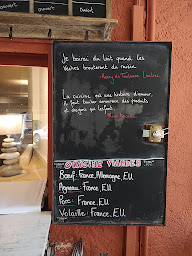 Ouvert
Ouvert
Je boirai du lait quand les
vaches brouteront du raisin
Henry de Toulouse Lautrec
La cuisine est une histoire d'amour
Il faut tomber amoureux des produits
et des gens qui les font
ORIGINE VIANDES
Bœuf: France, Allemagne, E.U
Agneau: France, E.U.
Porc: France, E.U
Volaille: France, E.U